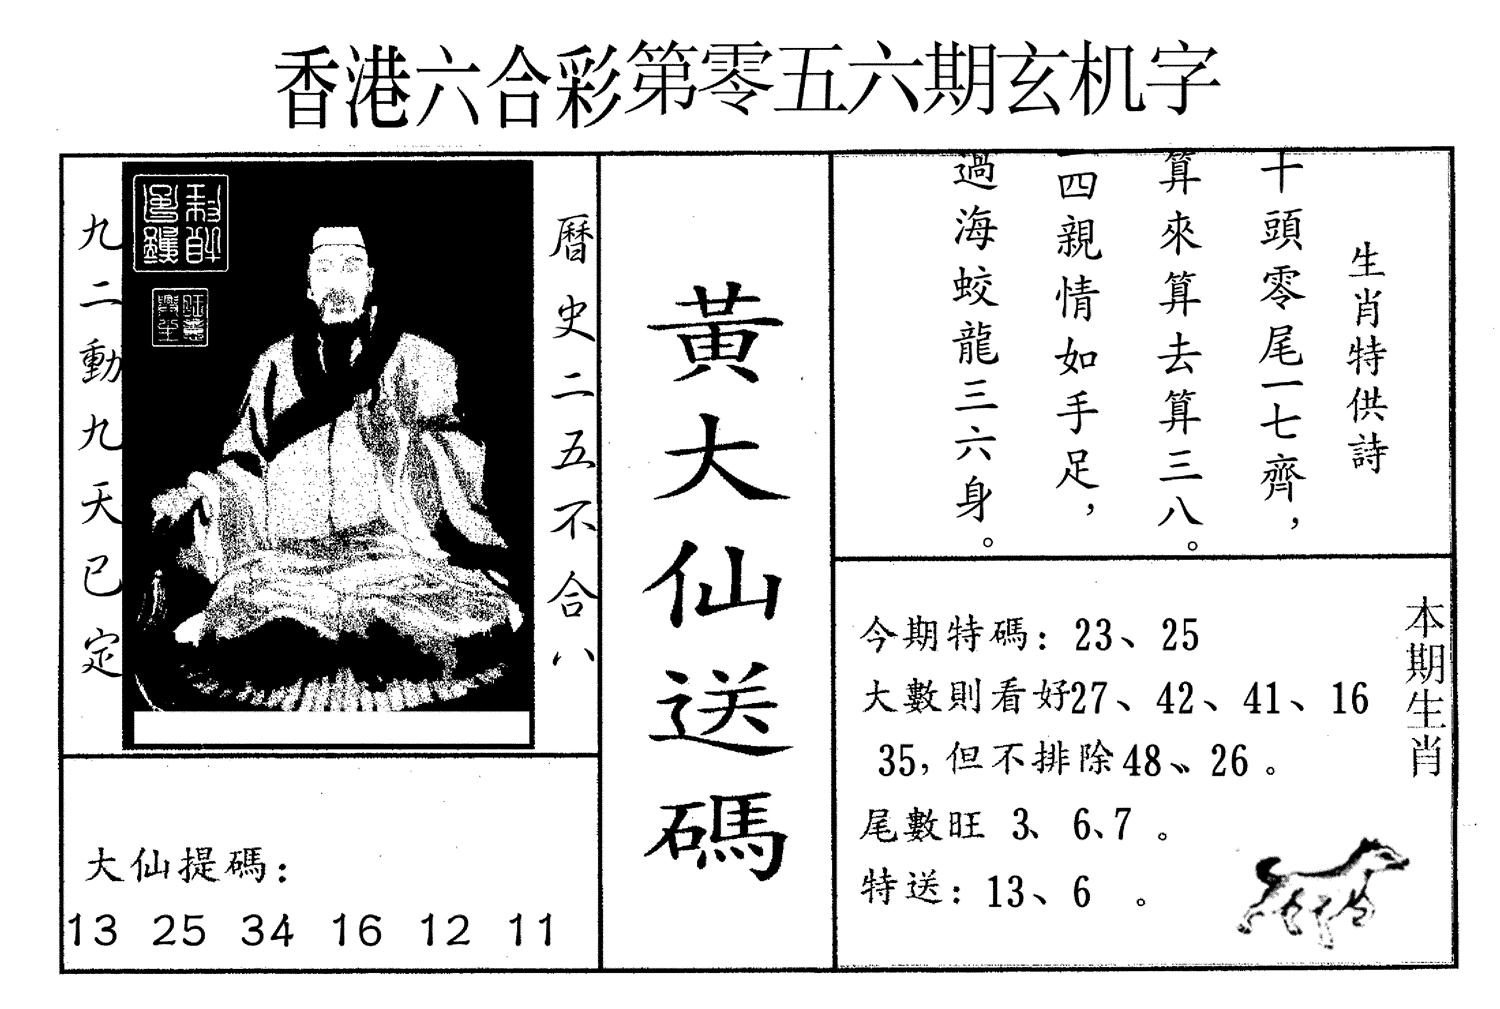 香港六合彩第零五六期玄机字
九二動九天已定
曆史二五不合八
黃大仙送碼
生肖特供詩
十頭零尾一七齊，
算來算去算三八。
一四親情如手足，
過海蛟龍三六身。
本期生肖
今期特碼：23、25
大數則看好27、42、41、16
35，但不排除48、26。
尾數旺 3、6、7。
特送：13、6 。
大仙提碼：
13 25 34 16 12 11